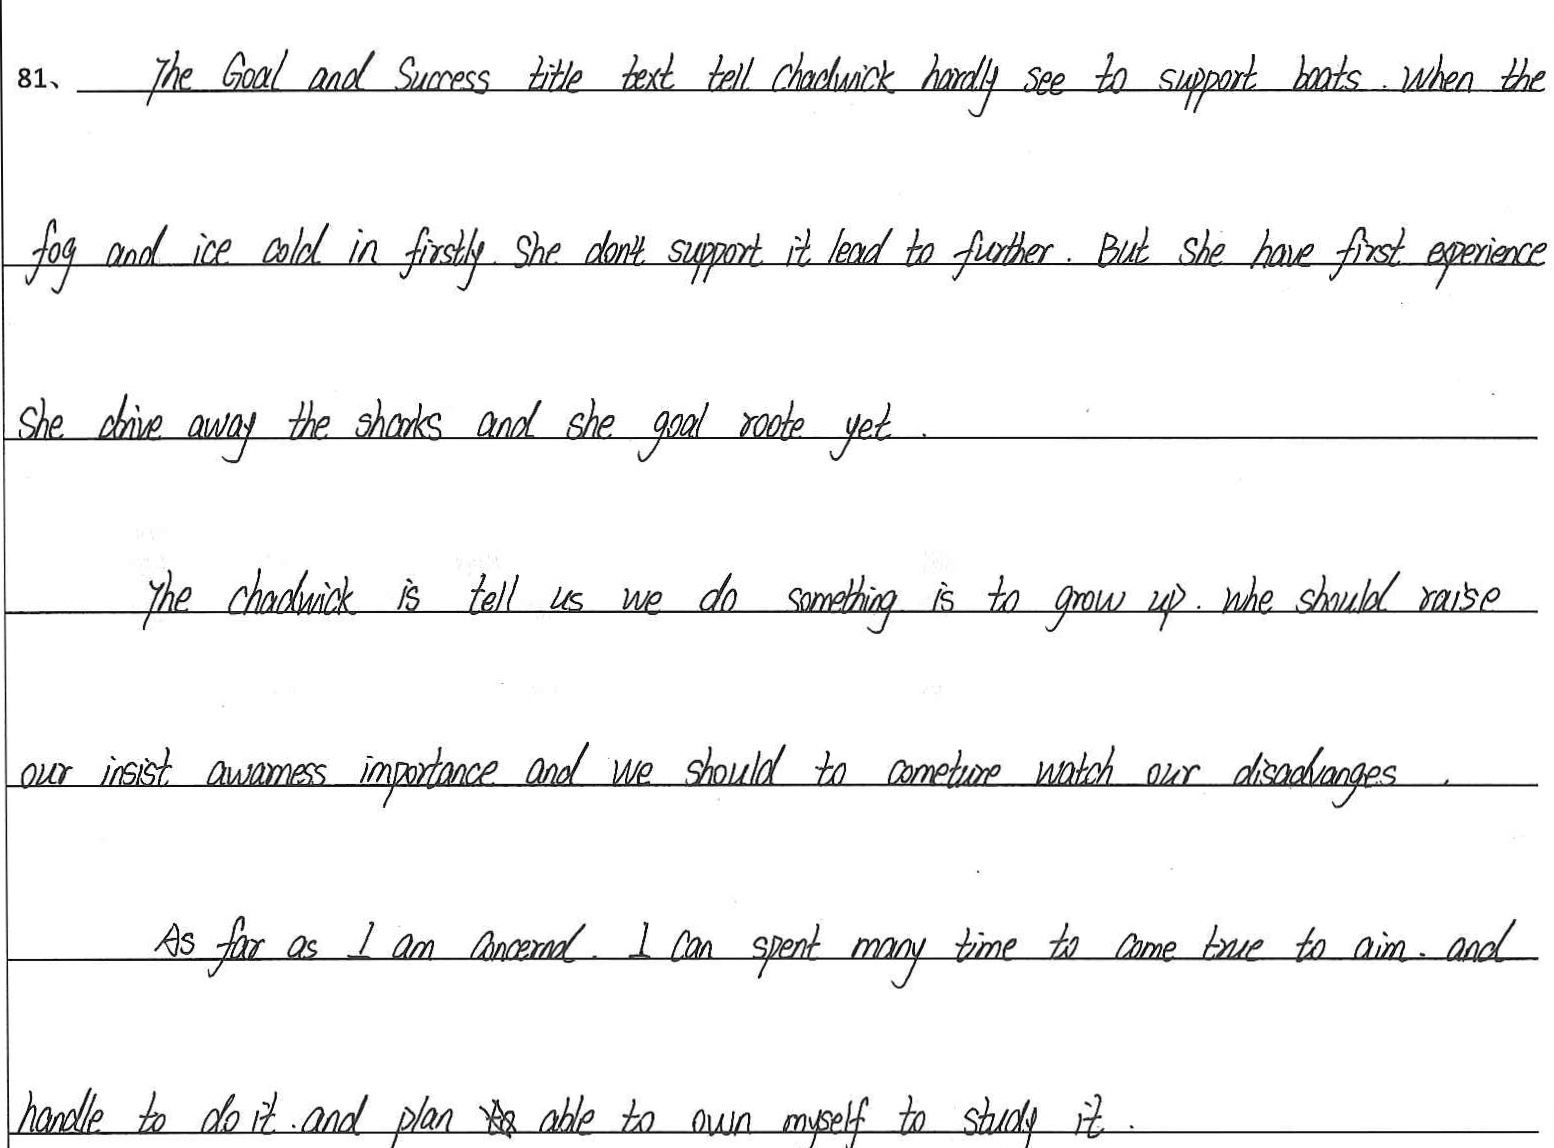 81、 The Goal and Success title text tell Chadwick hardly see to support boats. When the
fog and ice cold in firstly. She don't support it lead to further. But She have first experience
She drive away the sharks and she goal roote yet.
The chadwick is tell us we do something is to grow up. Whe should raise
our insist awarness importance and we should to watch our disadvanges.
As far as I am concernd. I can spent many time to come true to aim. and
handle to do it. and plan able to own myself to study it.